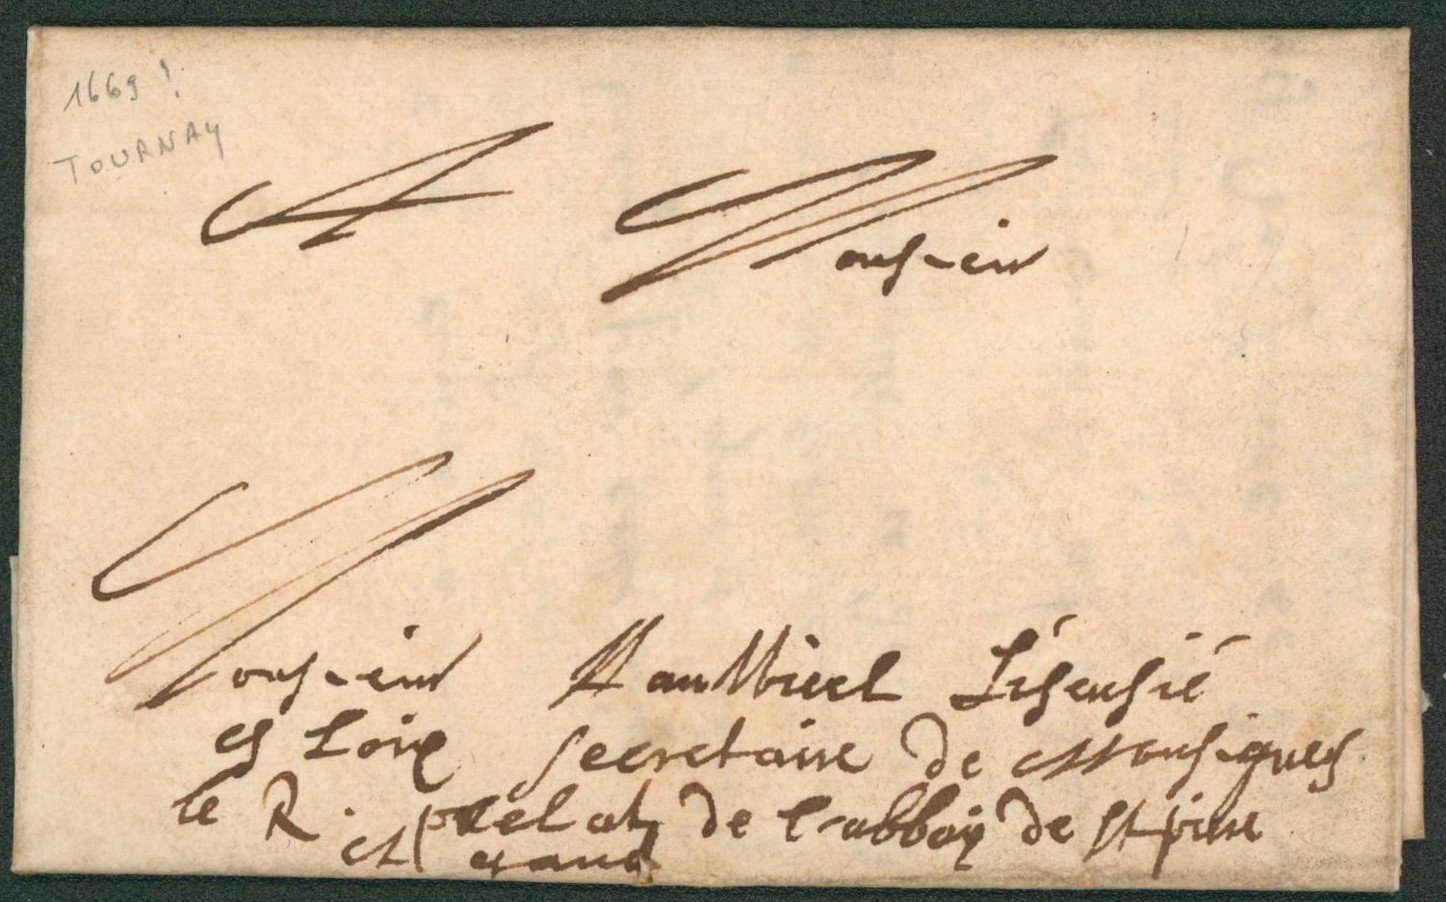 1669 !
TOURNAY
A Monsieur
Monsieur
es Loix secretaire de Monsigneur
le R. prelat de l'abbaÿ de st pierre
et gand